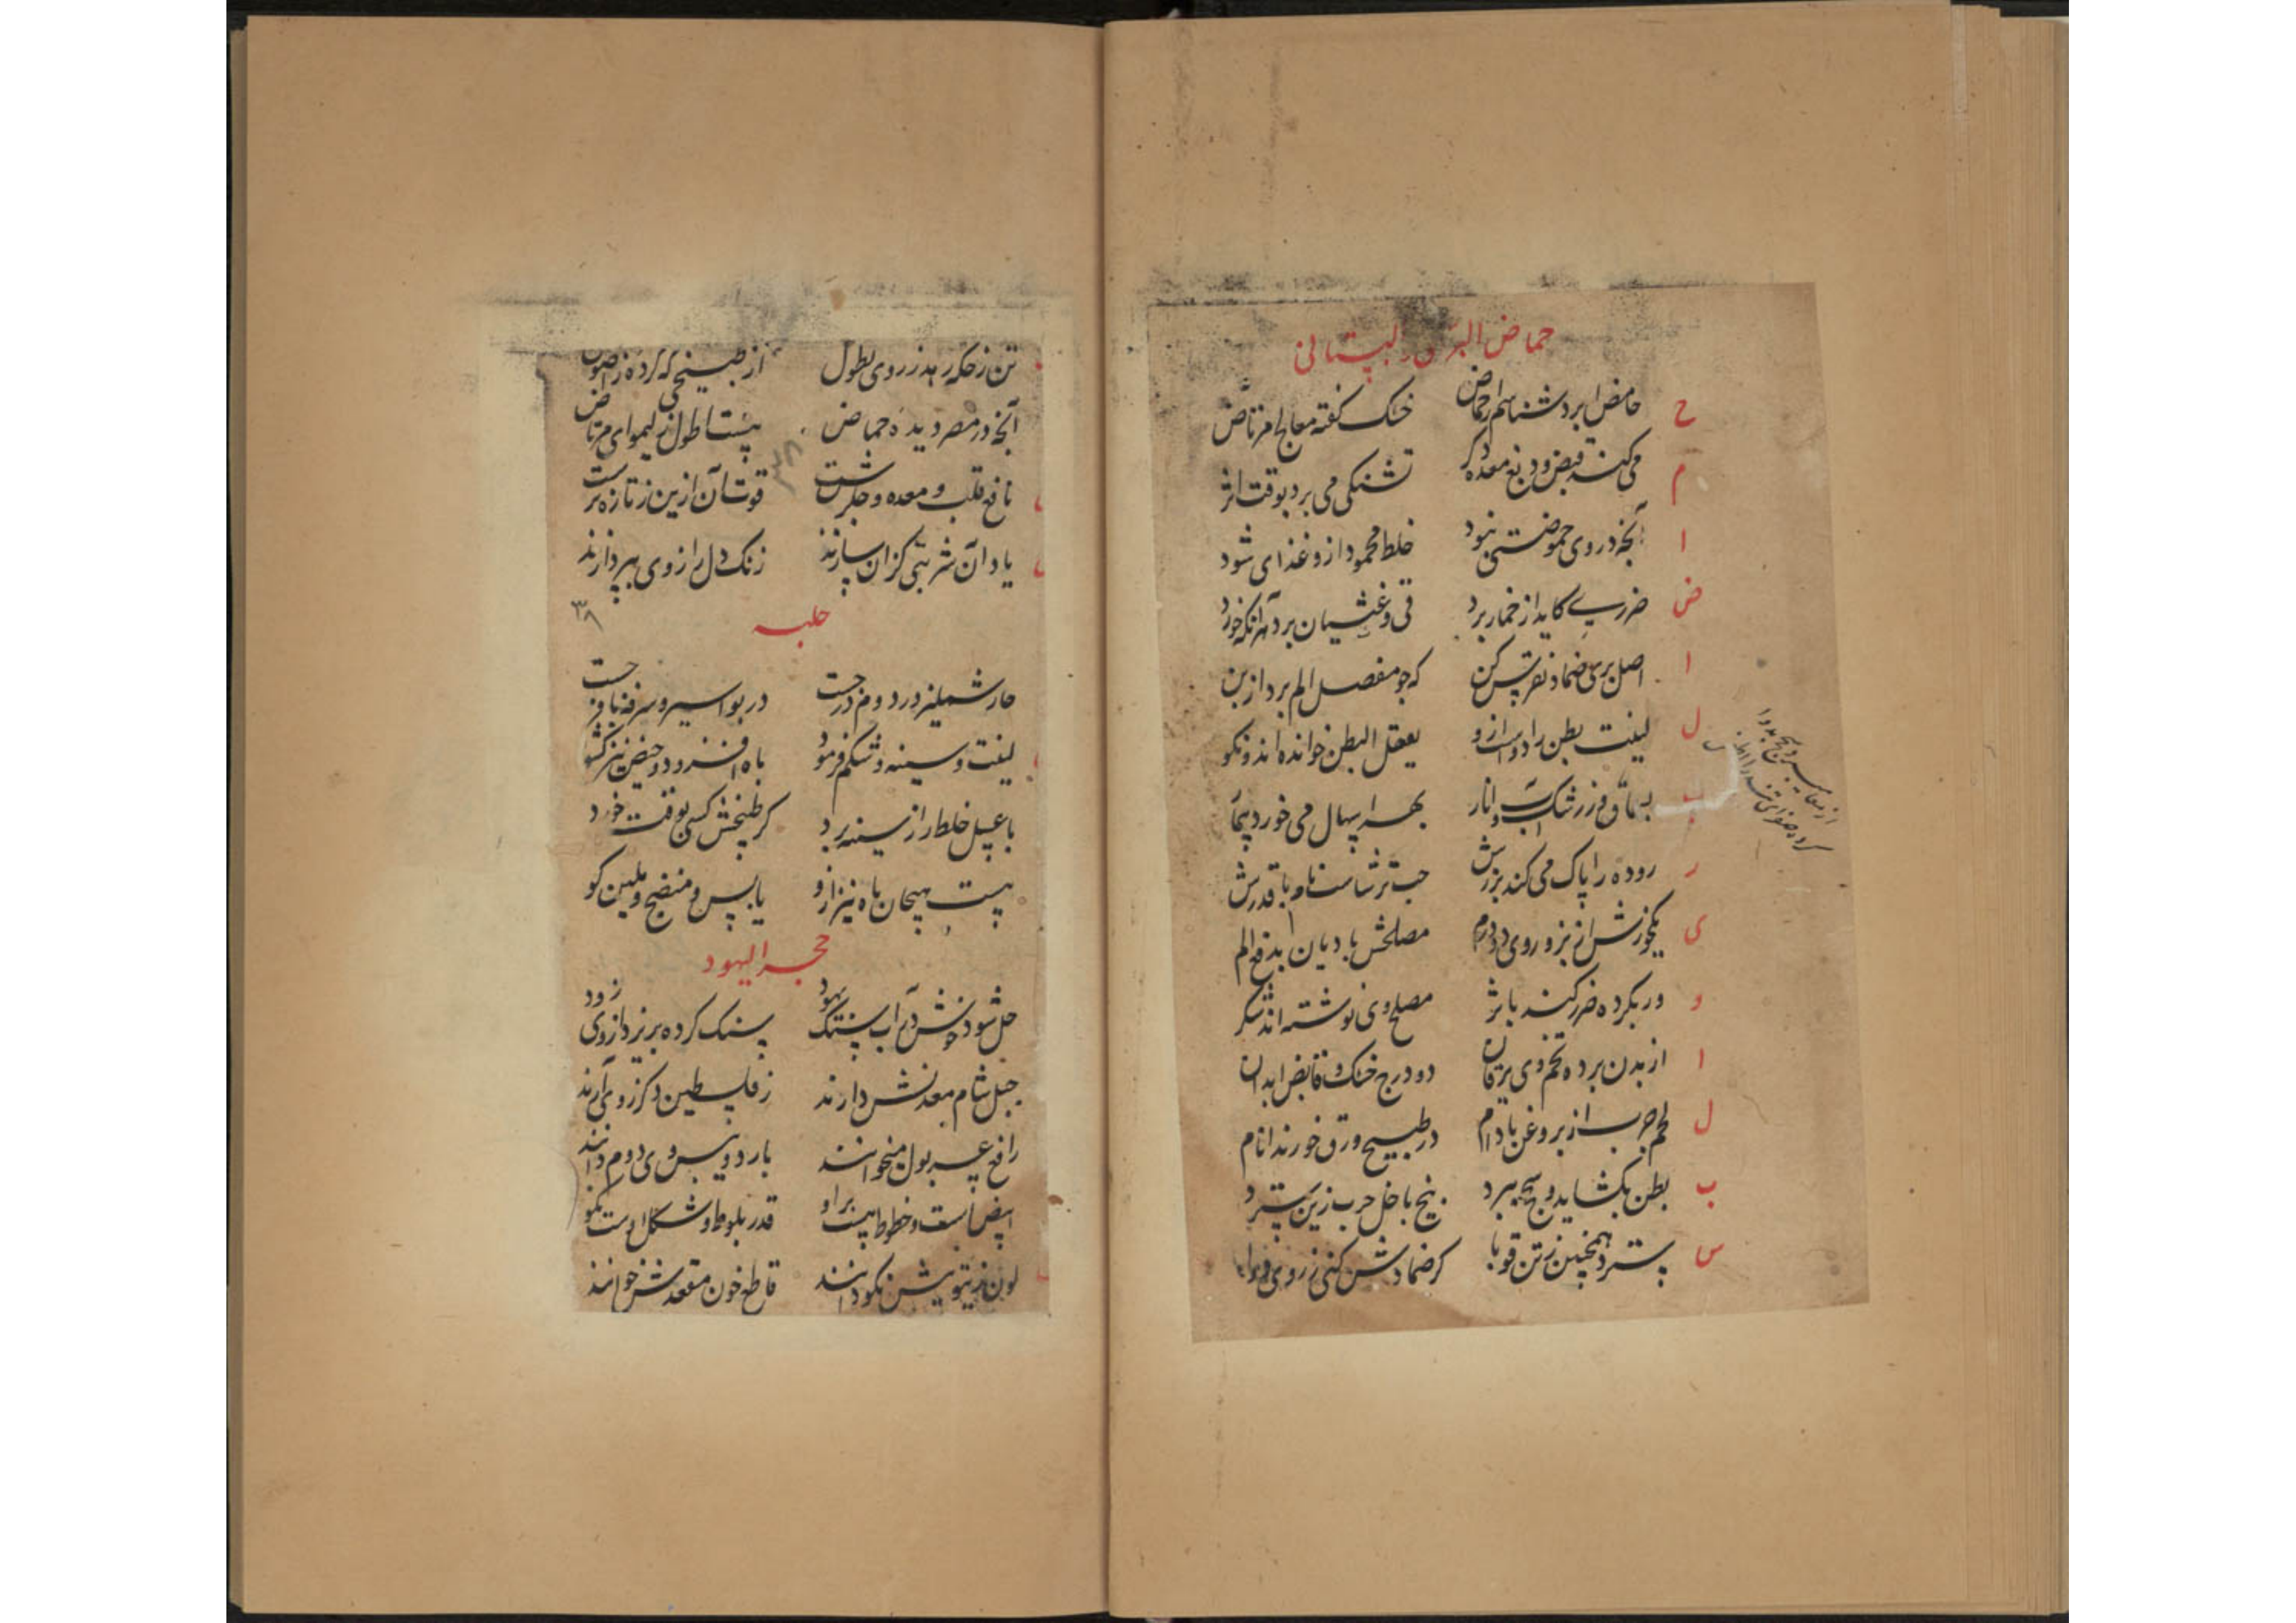 حماض البری و البستانی
ح حامض ابرد شناسم حماض خشک گفته معالج مرتاض
م می کند قبض و دبغ معده دکر تشنکی می برد بوقت اثر
ا آنچه در وی حموضتی نبود خلط محمود ازو غذای شود
ض ضرری کاید از خمار برد قی و غثیان برد هر آنکه خورد
ا اصل بری ضماد نقرس کن که چو مفصل الم برد از بن
ل لینت بطن را ازو یعقل البطن خوانده اند ونکو
ب به سماق و زرشک و انار بهر اسهال می خورد
ر روده را پاک می کند بزرش حب ترشاست نام با قدرش
ی یکخورش از بزور وی دو درم مصلحش بادیان بدفع الم
و ور بگرده ضرر کند باثر مصلح وی نوشته اند شکر
ا از بدن برده تخم وی یرقان دو درج خشک و قابض ابدان
ل لحم چرب از بروغن بادام در طبیخ ورق خورند انام
ب بطن بکشاید و سحج ببرد بیخ با خل جرب ز تن سترد
س بسترد همچنین ز تن قوبا کر ضمادش کنی ز روی دوا
تن ز حکه رهد ز روی بطول از طبیخی که کرده ز اصول
آنچه در مصر دیده حماض هست اطول ز لیمو ای مرتاض
نافع قلب و معده و جگر است قوت آن ازین ز تازه تر است
یاد آن شربتی کزان سازند زنک دل را ز وی بپردازند
۳۸
حلبه
حار شملیز در دوم در جست در بواسیر و سرفه نافع جست
لینت و سینه و شکم فرمود باه افزود و حیض نیز کشود
با عسل خلط را ز سینه برد کر طبخش کسی بوقت خورد
هست هیجان باه نیز ازو یابس و منضج و ملین کو
حجر الیهود
حل شود چونش در آب سنک یهود سنک کرده بریزد از وی زود
جبل شام معدنش دارند ز فلسطین دکر ز وی آرند
رافع عسر بول میخوانند بارد و یبس وی دوم دانند
ابیض است و خطوط هست برو قدر بلوط و شکل اوست نکو
لون زیتونیش نکو دانند قاطع خون مقعدش خوانند